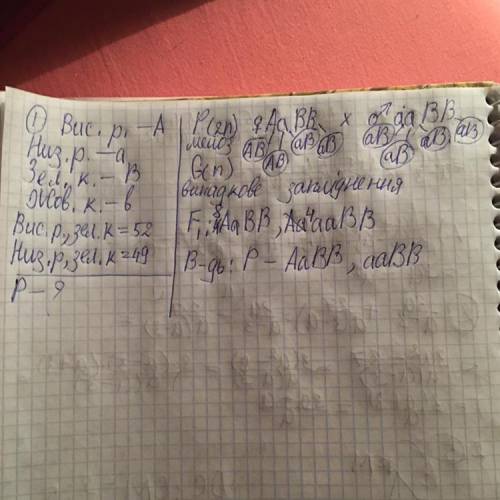 ① Вис. р. – А
Низ. р. – а
Зел. к. – В
Жов. к. – в
Вис. р, зел. к = 52
Низ. р, зел. к = 49
Р – ?
Р (2n) ♀ Аа ВВ х ♂ аа ВВ
мейоз АВ АВ аВ аВ аВ аВ аВ аВ
G(n)
випадкове запліднення
F₁: АаВВ, ааВВ
В-дь: Р – АаВВ, ааВВ